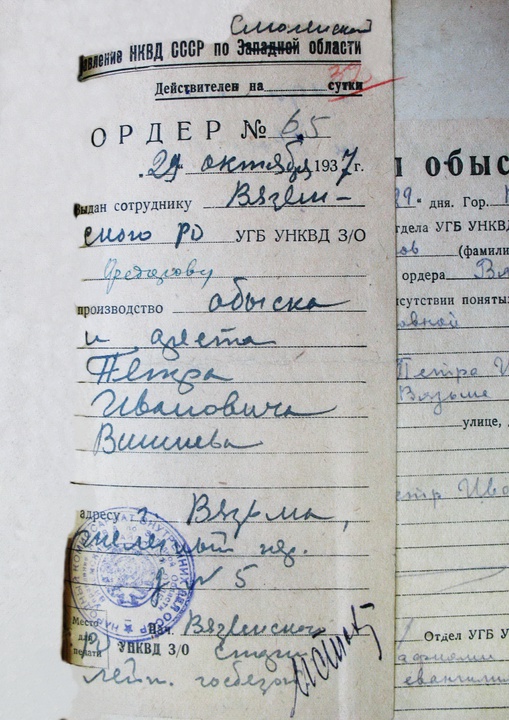 Смоленской
авление НКВД СССР по Западной области
Действителен на сутки
ОРДЕР № 65
29 октября 1937 г.
Выдан сотруднику Вязем-
ского РО УГБ УНКВД З/О
производство обыска
и ареста
Петра
Ивановича
адресу г. Вязьма,
пер.
д. № 5
Место для печати
Нач. Вяземского
УНКВД З/О
Лейт. госбезоп
обыс
29. дня. Гор.
тдела УГБ УНКВД
ов (фамили
ордера Вя
сутствии понятых
овной
Петра И
Вязьме
улице,
етр Ива
Отдел УГБ У